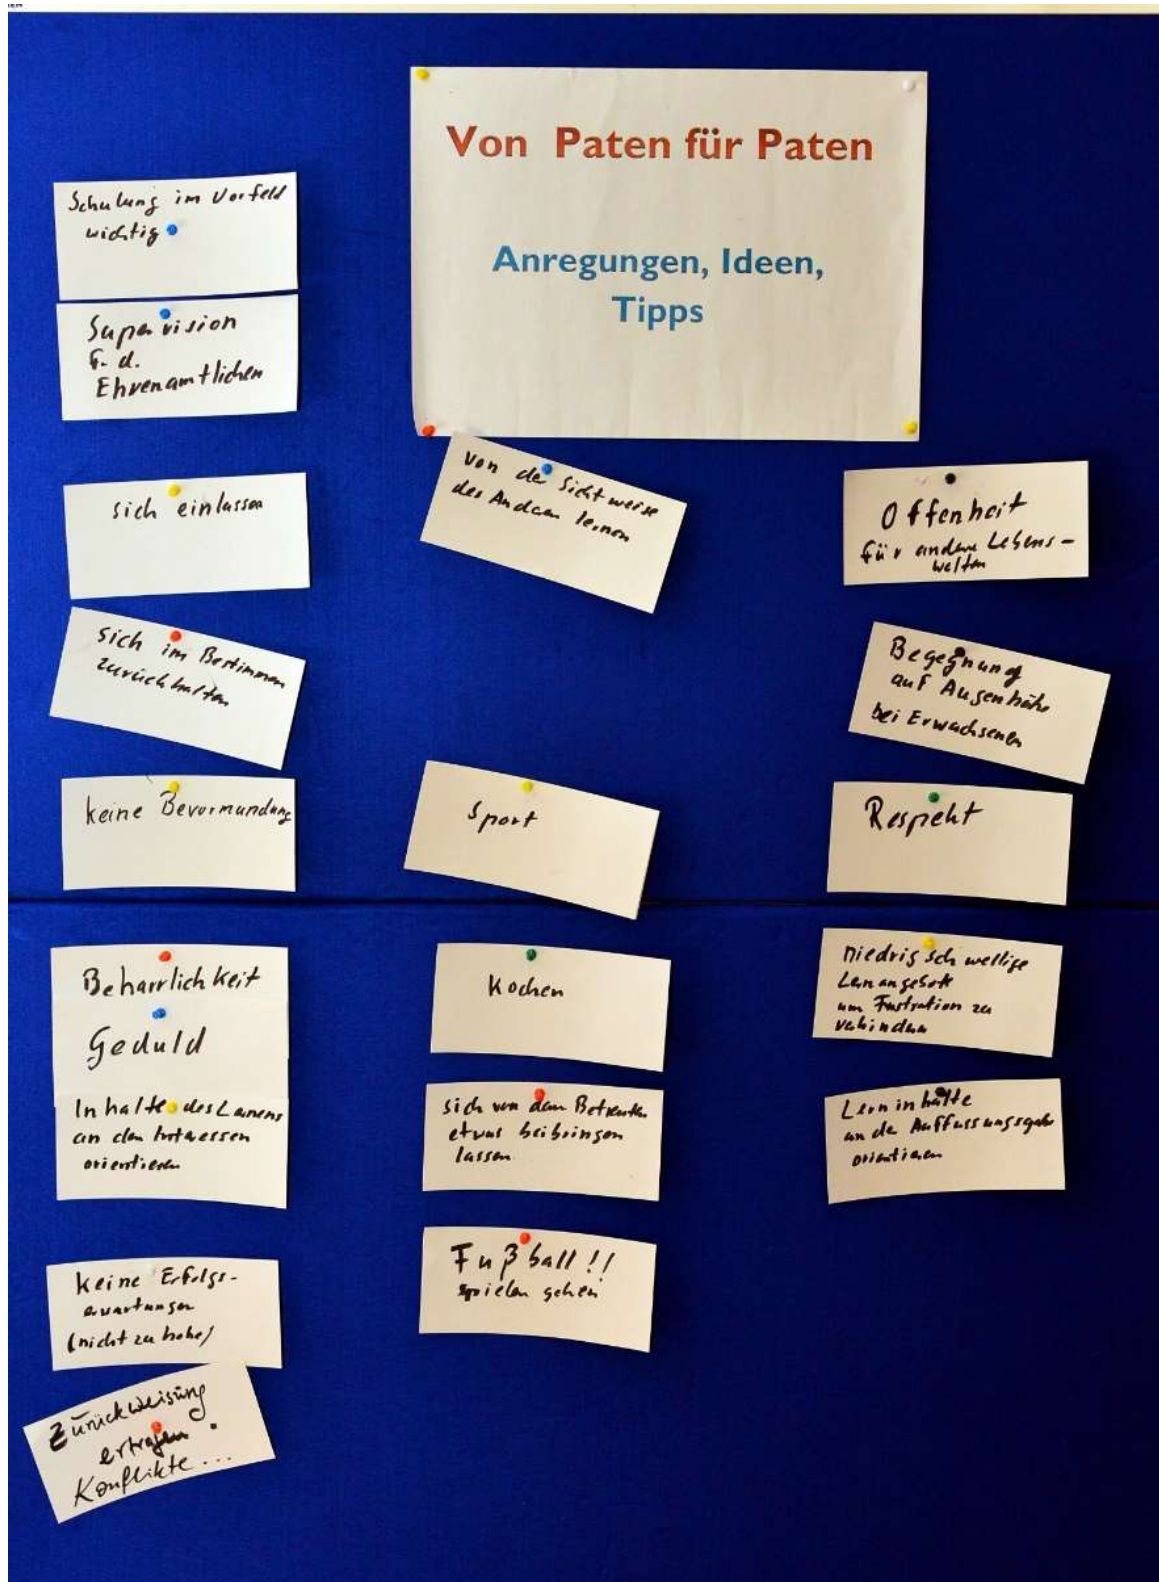 Von Paten für Paten
Anregungen, Ideen,
Tipps
Schulung im Vorfeld
wichtig
Supervision
f. d.
Ehrenamtlichen
sich einlassen
sich im Bestimmen
zurückhalten
keine Bevormundung
Beharrlichkeit
Geduld
Inhalte des Lernens
an den Interessen
orientieren
keine Erfolgs-
erwartungen
(nicht zu hohe)
Zurückweisung
ertragen.
Konflikte...
von der Sichtweise
des Anderen lernen
Sport
Kochen
sich von dem Betreuten
etwas beibringen
lassen
Fußball!!
spielen gehen
Offenheit
für andere Lebens-
welten
Begegnung
auf Augenhöhe
bei Erwachsenen
Respekt
niedrigschwellige
Lernangebote
um Frustration zu
verhindern
Lerninhalte
an de Auffassungsgabe
orientieren